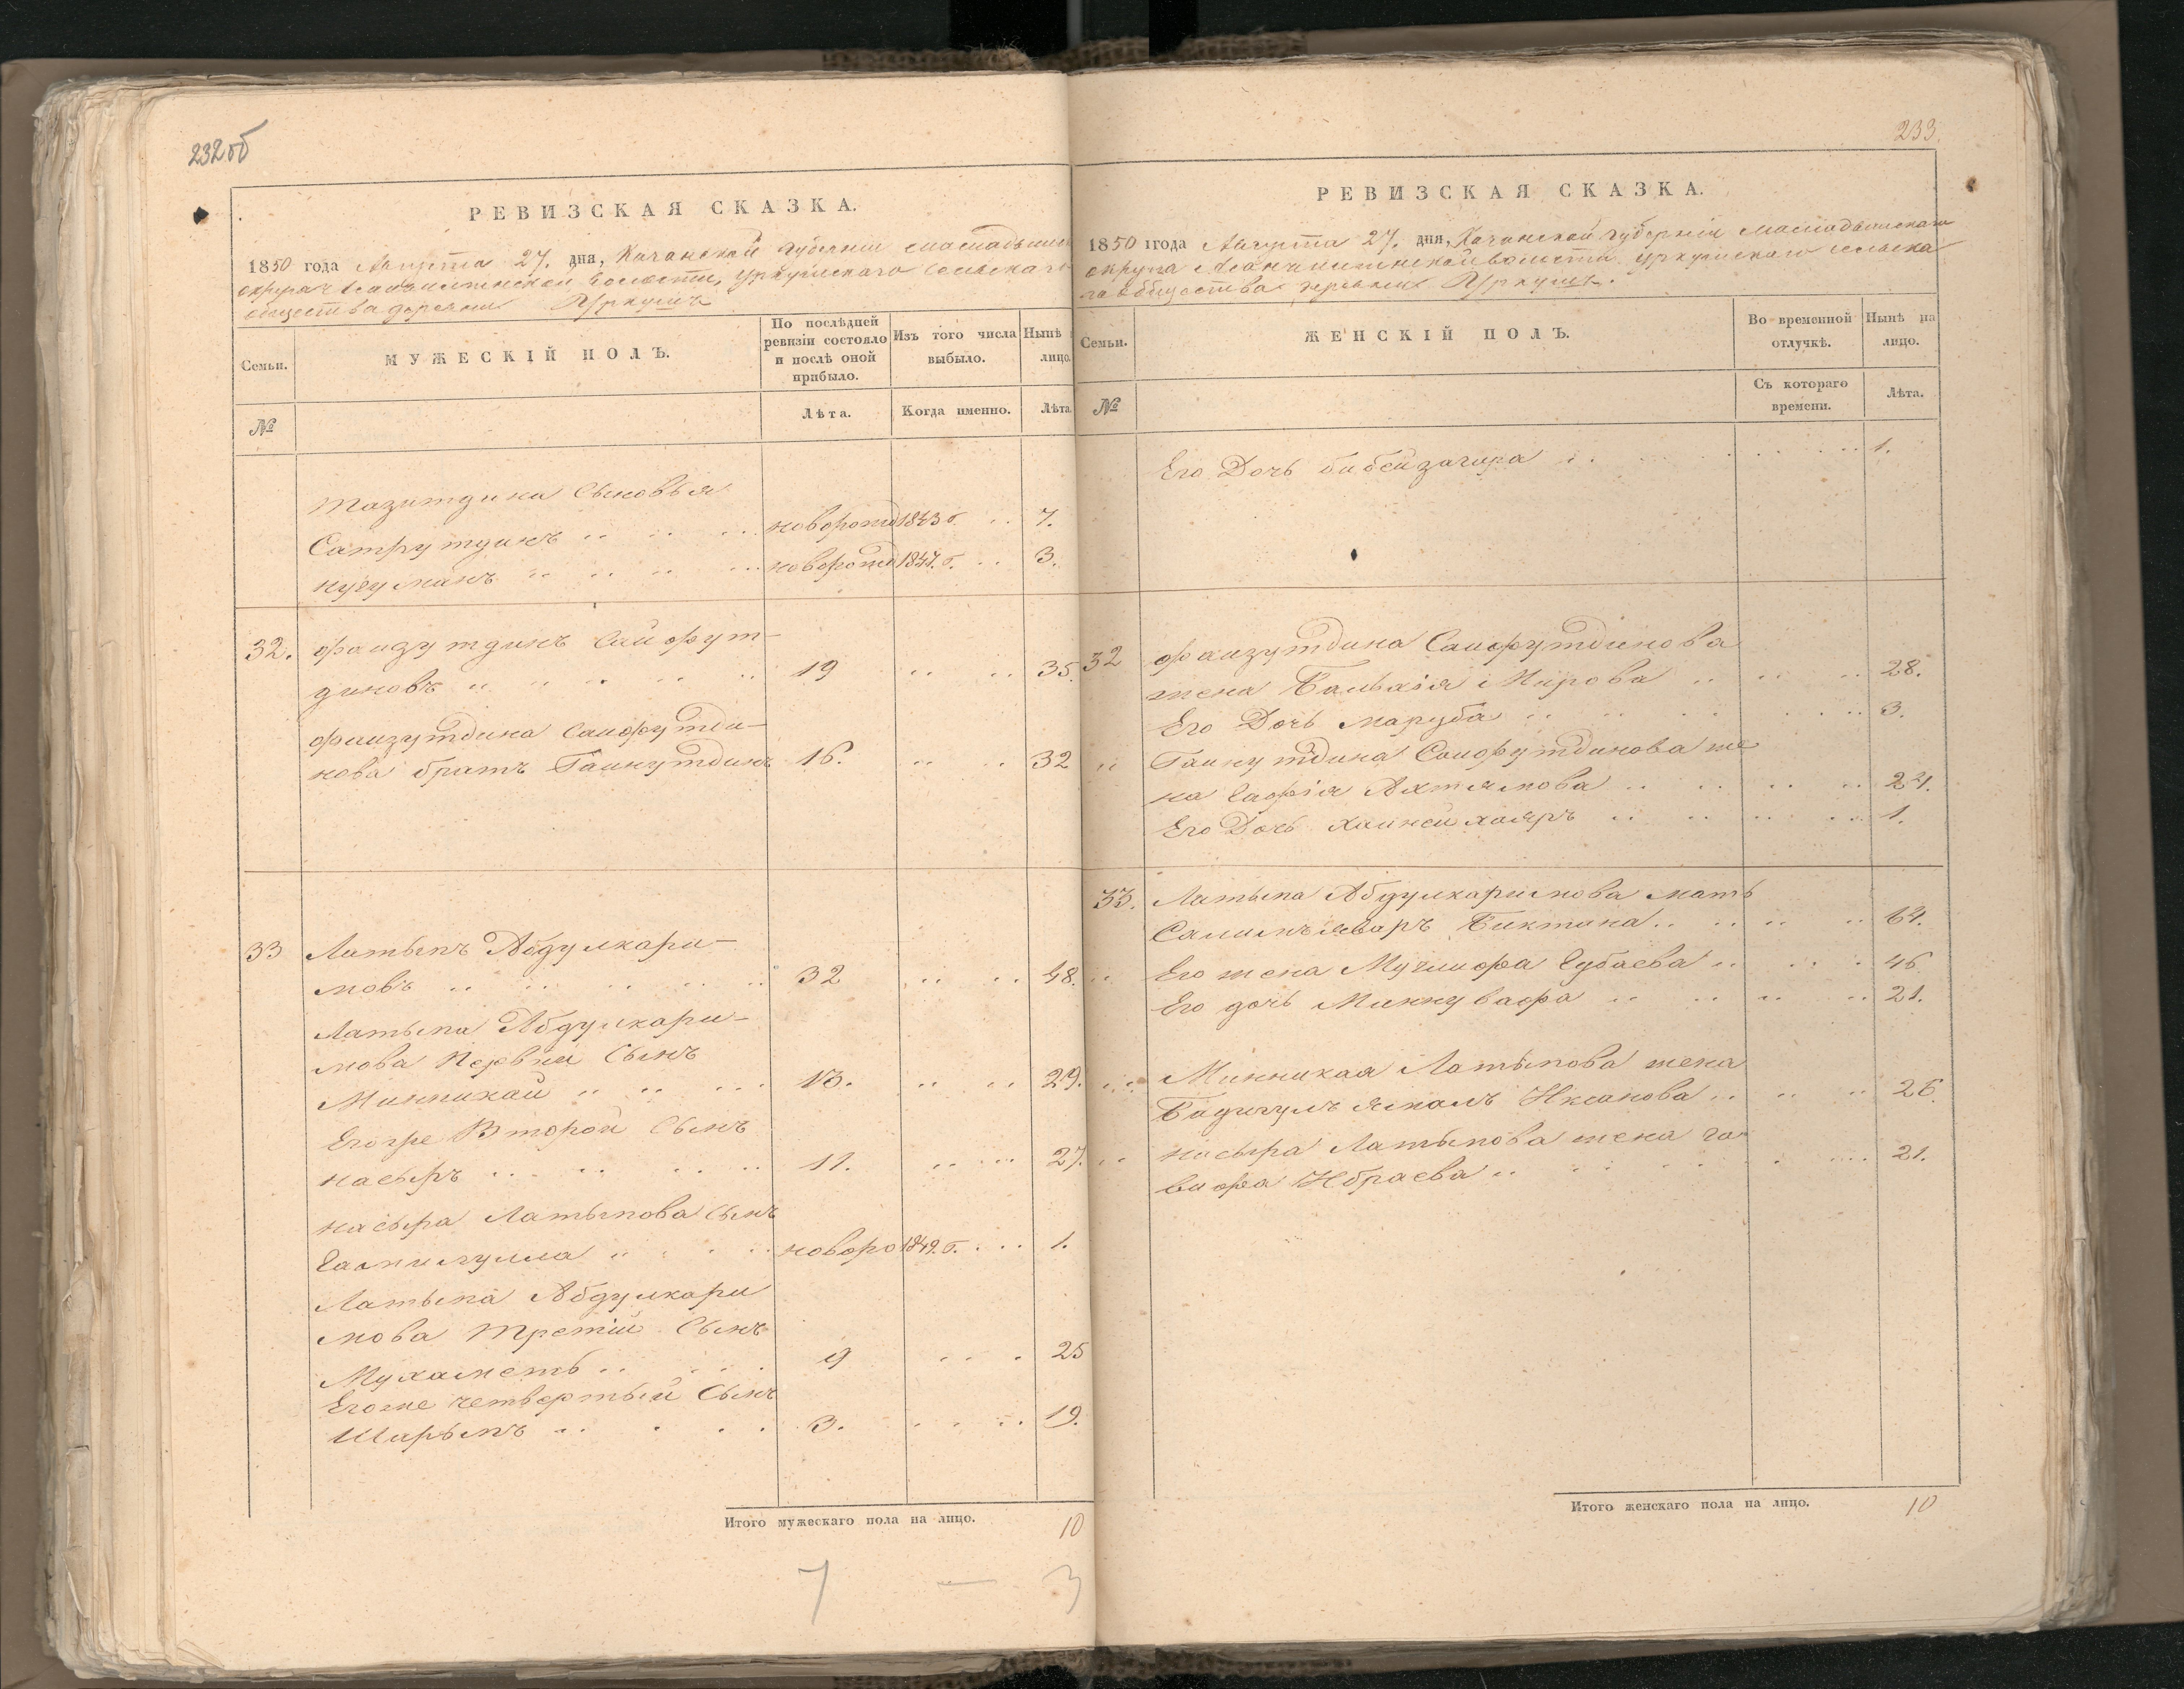 232об
РЕВИЗСКАЯ СКАЗКА.
1850 года Августа 27. дня, Казанской губернии мамадышск
округа волости, Уркушскаго сельскаго
общества деревни Уркушъ
Семьи.
МУЖЕСКІЙ ПОЛЪ.
По послѣдней ревизіи состояло и послѣ оной прибыло.
Изъ того числа выбыло.
Нынѣ лицо.
№
Лѣта.
Когда именно.
Лѣта
Тазитдина Сыновья
Сатрутдинъ новорожд 1843 г. 7.
нугуманъ новорожд 1847. г. 3.
32. фаизутдинъ Сайфут-
диновъ 19 35.
фаизутдина Саифутди-
нова братъ Гаинутдинъ 16. 32
33 Латыпъ Абдулкари-
мовъ 32 48.
Латыпа Абдулкари-
мова Первый Сынъ
Минникай 13. 29.
Егоже Второй Сынъ
насыръ 11. 27.
насыра Латыпова Сынъ
новоро 1849. г. 1.
Латыпа Абдулкари
мова третій Сынъ
Мухаметь 9 25
Егоже четвертый Сынъ
Шарыпъ 3. 19.
Итого мужескаго пола на лицо. 10
7 — 3
233.
РЕВИЗСКАЯ СКАЗКА.
1850 года Августа 27. дня, Казанской губерніи мамадышскаго
округа волости уркушскаго сельска
го общества деревни Уркушъ.
Семьи.
ЖЕНСКІЙ ПОЛЪ.
Во временной отлучкѣ.
Нынѣ на лицо.
№
Съ котораго времени.
Лѣта.
Его Дочь бибейзагира 1.
32 фаизутдина Саифутдинова
жена Мирова 28.
Его Дочь Маруба 3.
Гаинутдина Саифутдинова же
на Сафія Ахтямова 24.
Его Дочь 1.
33. Латыпа Абдулкаримова мать
Биктина 64.
Его жена Губаева 46
Его дочь Миннувафа 21.
Минникая Латыпова жена
Иксанова 26.
насыра Латыпова жена га
вифа Ибраева 21.
Итого женскаго пола на лицо. 10